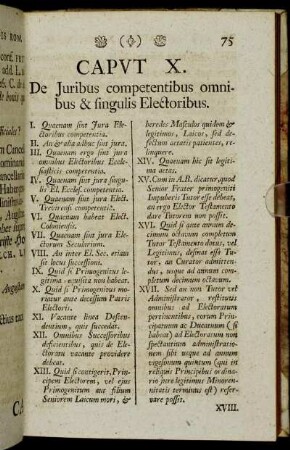 75
CAPVT X.
De Juribus competentibus omni-
bus & singulis Electoribus.
I. Quaenam sint Jura Ele-
ctoribus competentia.
II. An & alia adhuc sint jura.
III. Quaenam ergo sint jura
omnibus Electoribus Eccle-
siasticis competentia.
IV. Quaenam sint jura singu-
lis El. Ecclef. competentia.
V. Quaenam sint jura Elect.
Trevirensi competentia.
VI. Quaenam habeat Elect.
Coloniensis.
VII. Quaenam sint jura Ele-
ctorum Secularium.
VIII. An inter El. Sec. etiam
sit locus successioni.
IX. Quid si Primogenitus le-
gitima natus non habeat
X. Quid si Primogenitus mo-
riatur ante decessum Patris
Electoris.
XI. Vacante linea Descen-
dentium, quis succedat.
XII. Omnibus Successoribus
deficientibus, quis de Ele-
ctoratu vacante providere
debeat.
XIII. Quid si contigerit, Prin-
cipem Electorem, vel ejus
Primogenitum ma filium
Seniorem Laicum mori, &
heredes Masculos quidem &
legitimos, Laicos, sed de-
fectum aetatis patientes, re-
linquere.
XIV. Quaenam hic sit legiti-
ma aetas.
XV. Cum in A.B. dicatur, quod
Senior Frater primogeniti
Impuberis Tutor esse debeat,
an ergo Elector Testamento
dare Tutorem non possit.
XVI. Quid si ante annum de-
cimum octavum completum
Tutor Testamento datus, vel
Legitimus, desinat esse Tu-
tor, an Curator admitten-
dus, usque ad annum com-
pletum decimum octavum.
XVII. Sed an non Tutor vel
Administrator, restitutis
omnibus ad Electoratum
pertinentibus, eorum Princi-
patuum & Ducatuum (si
habeat) ad Electoratum non
spectantium administratio-
nem sibi usque ad annum
vigesimum quintum (qui in
reliquis Principibus ordina-
rio jure legitimus Minoren-
nitatis terminus est) reser-
vare possit.
XVIII.